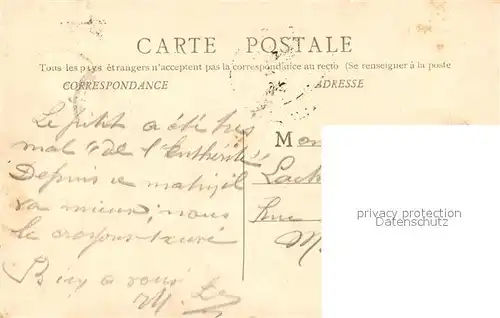 CARTE POSTALE
Tous les pays étrangers n'acceptent pas la correspondance au recto (Se renseigner à la poste
CORRESPONDANCE
ADRESSE
Le petit a été très
mal "de l'Enthérite"
Depuis ce matin, il
va mieux; nous
le croyons sauvé
B
à vous
M. L
M
Rue
M.
privacy protection
Datenschutz